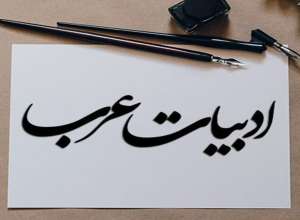 ادبیات عرب